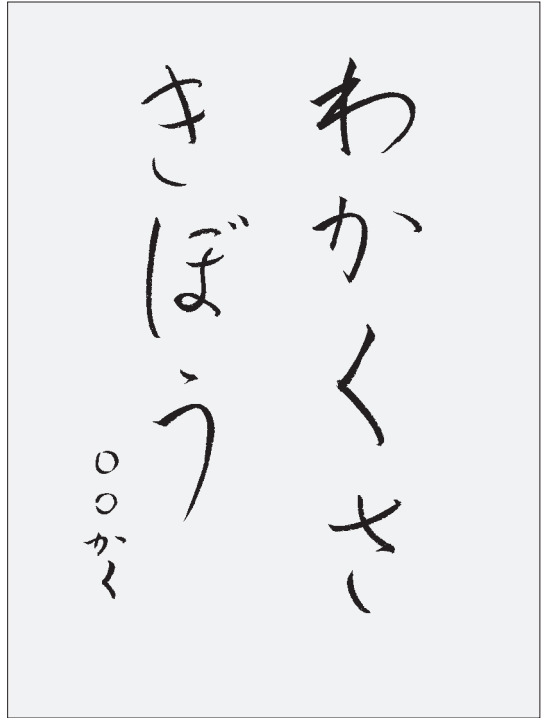 わかくさ
きぼう
○○かく